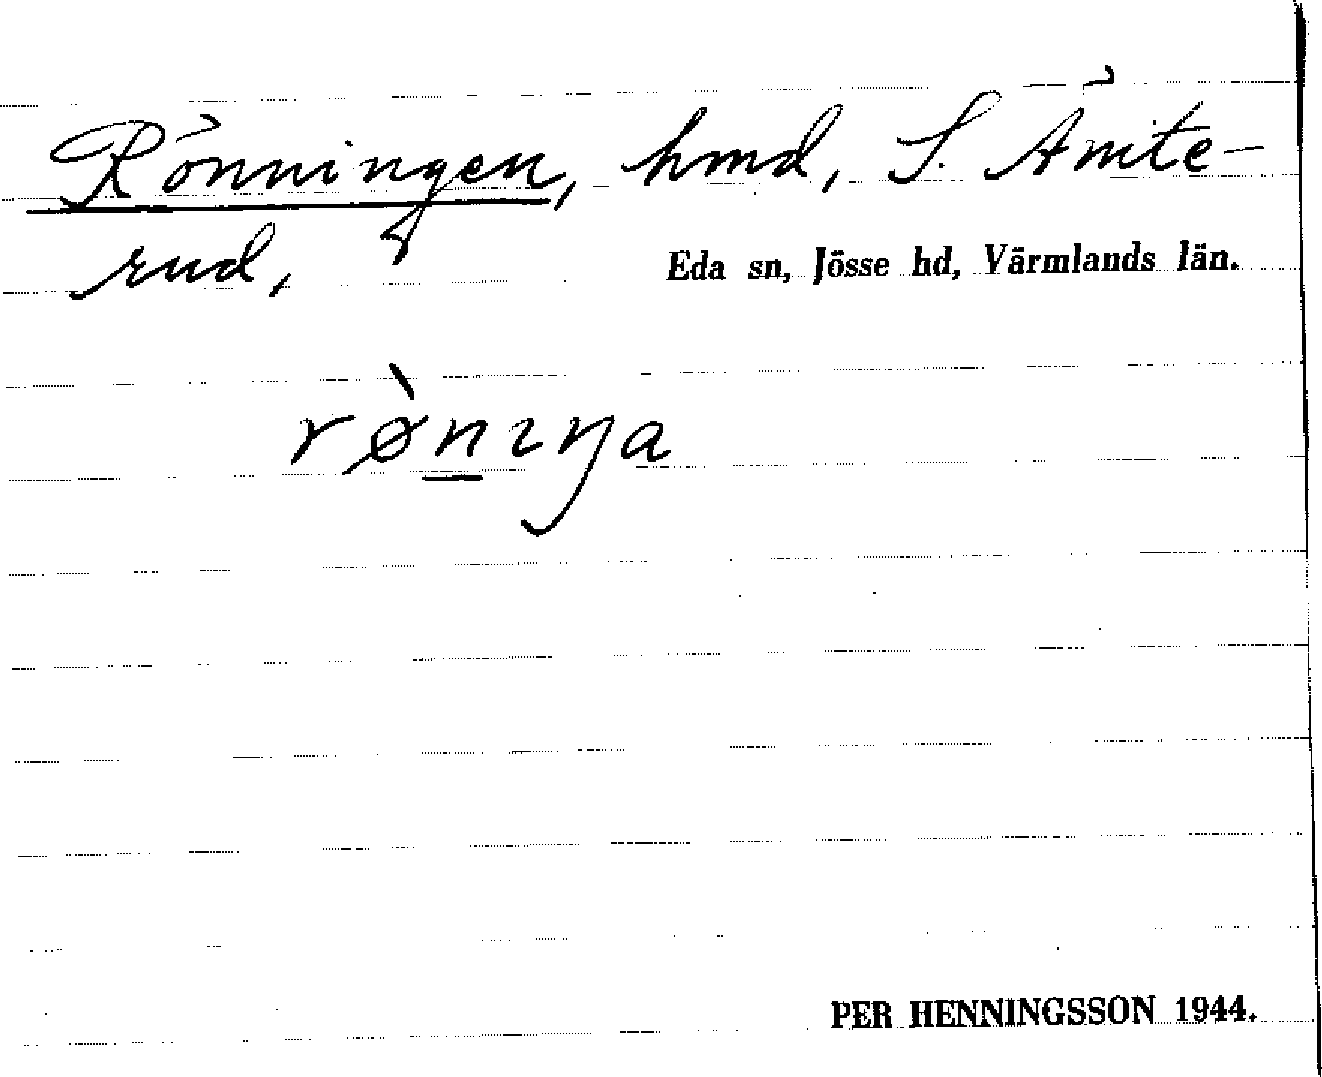 Rönningen, hmd, S. Ämte-
rud,
Eda sn, Jösse hd, Värmlands län.
rø̀nıŋa
PER HENNINGSSON 1944.